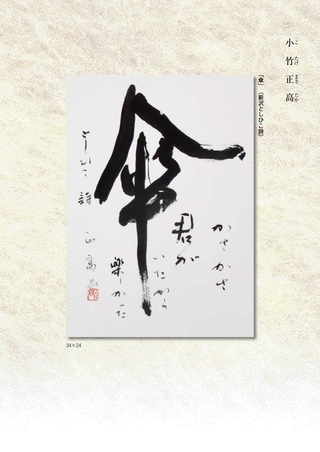 小竹正高
こ たけ まさ たか
「傘」(新沢としひこ詩)
傘
かさかさ
君が
いたから
楽しかった
としひこ詩
正高
34×24